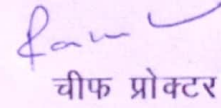 चीफ प्रोक्टर